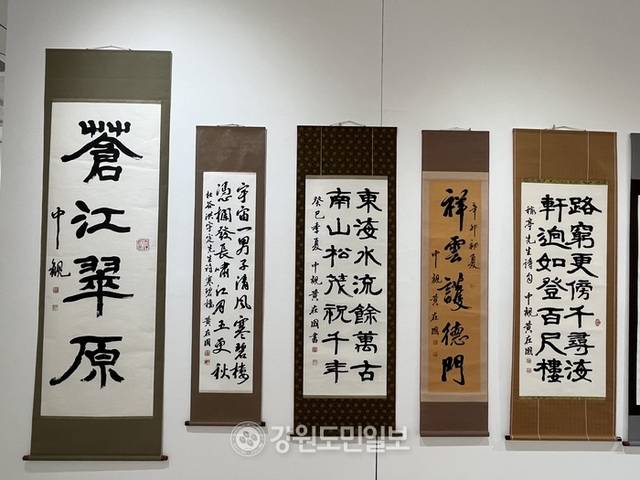 蒼江翠原
中觀
宇宙一男子清風寒碧樓
憑欄發長嘯江月五更秋
杜谷洪宇定先生詩寒碧樓 黃在國
東海水流餘萬古
南山松茂祝千年
癸巳季夏 中觀黃在國書
辛卯初夏
祥雲護德門
中觀黃在國
路窮更傍千尋海
軒逈如登百尺樓
亭先生詩句 中觀黃在國
강원도민일보